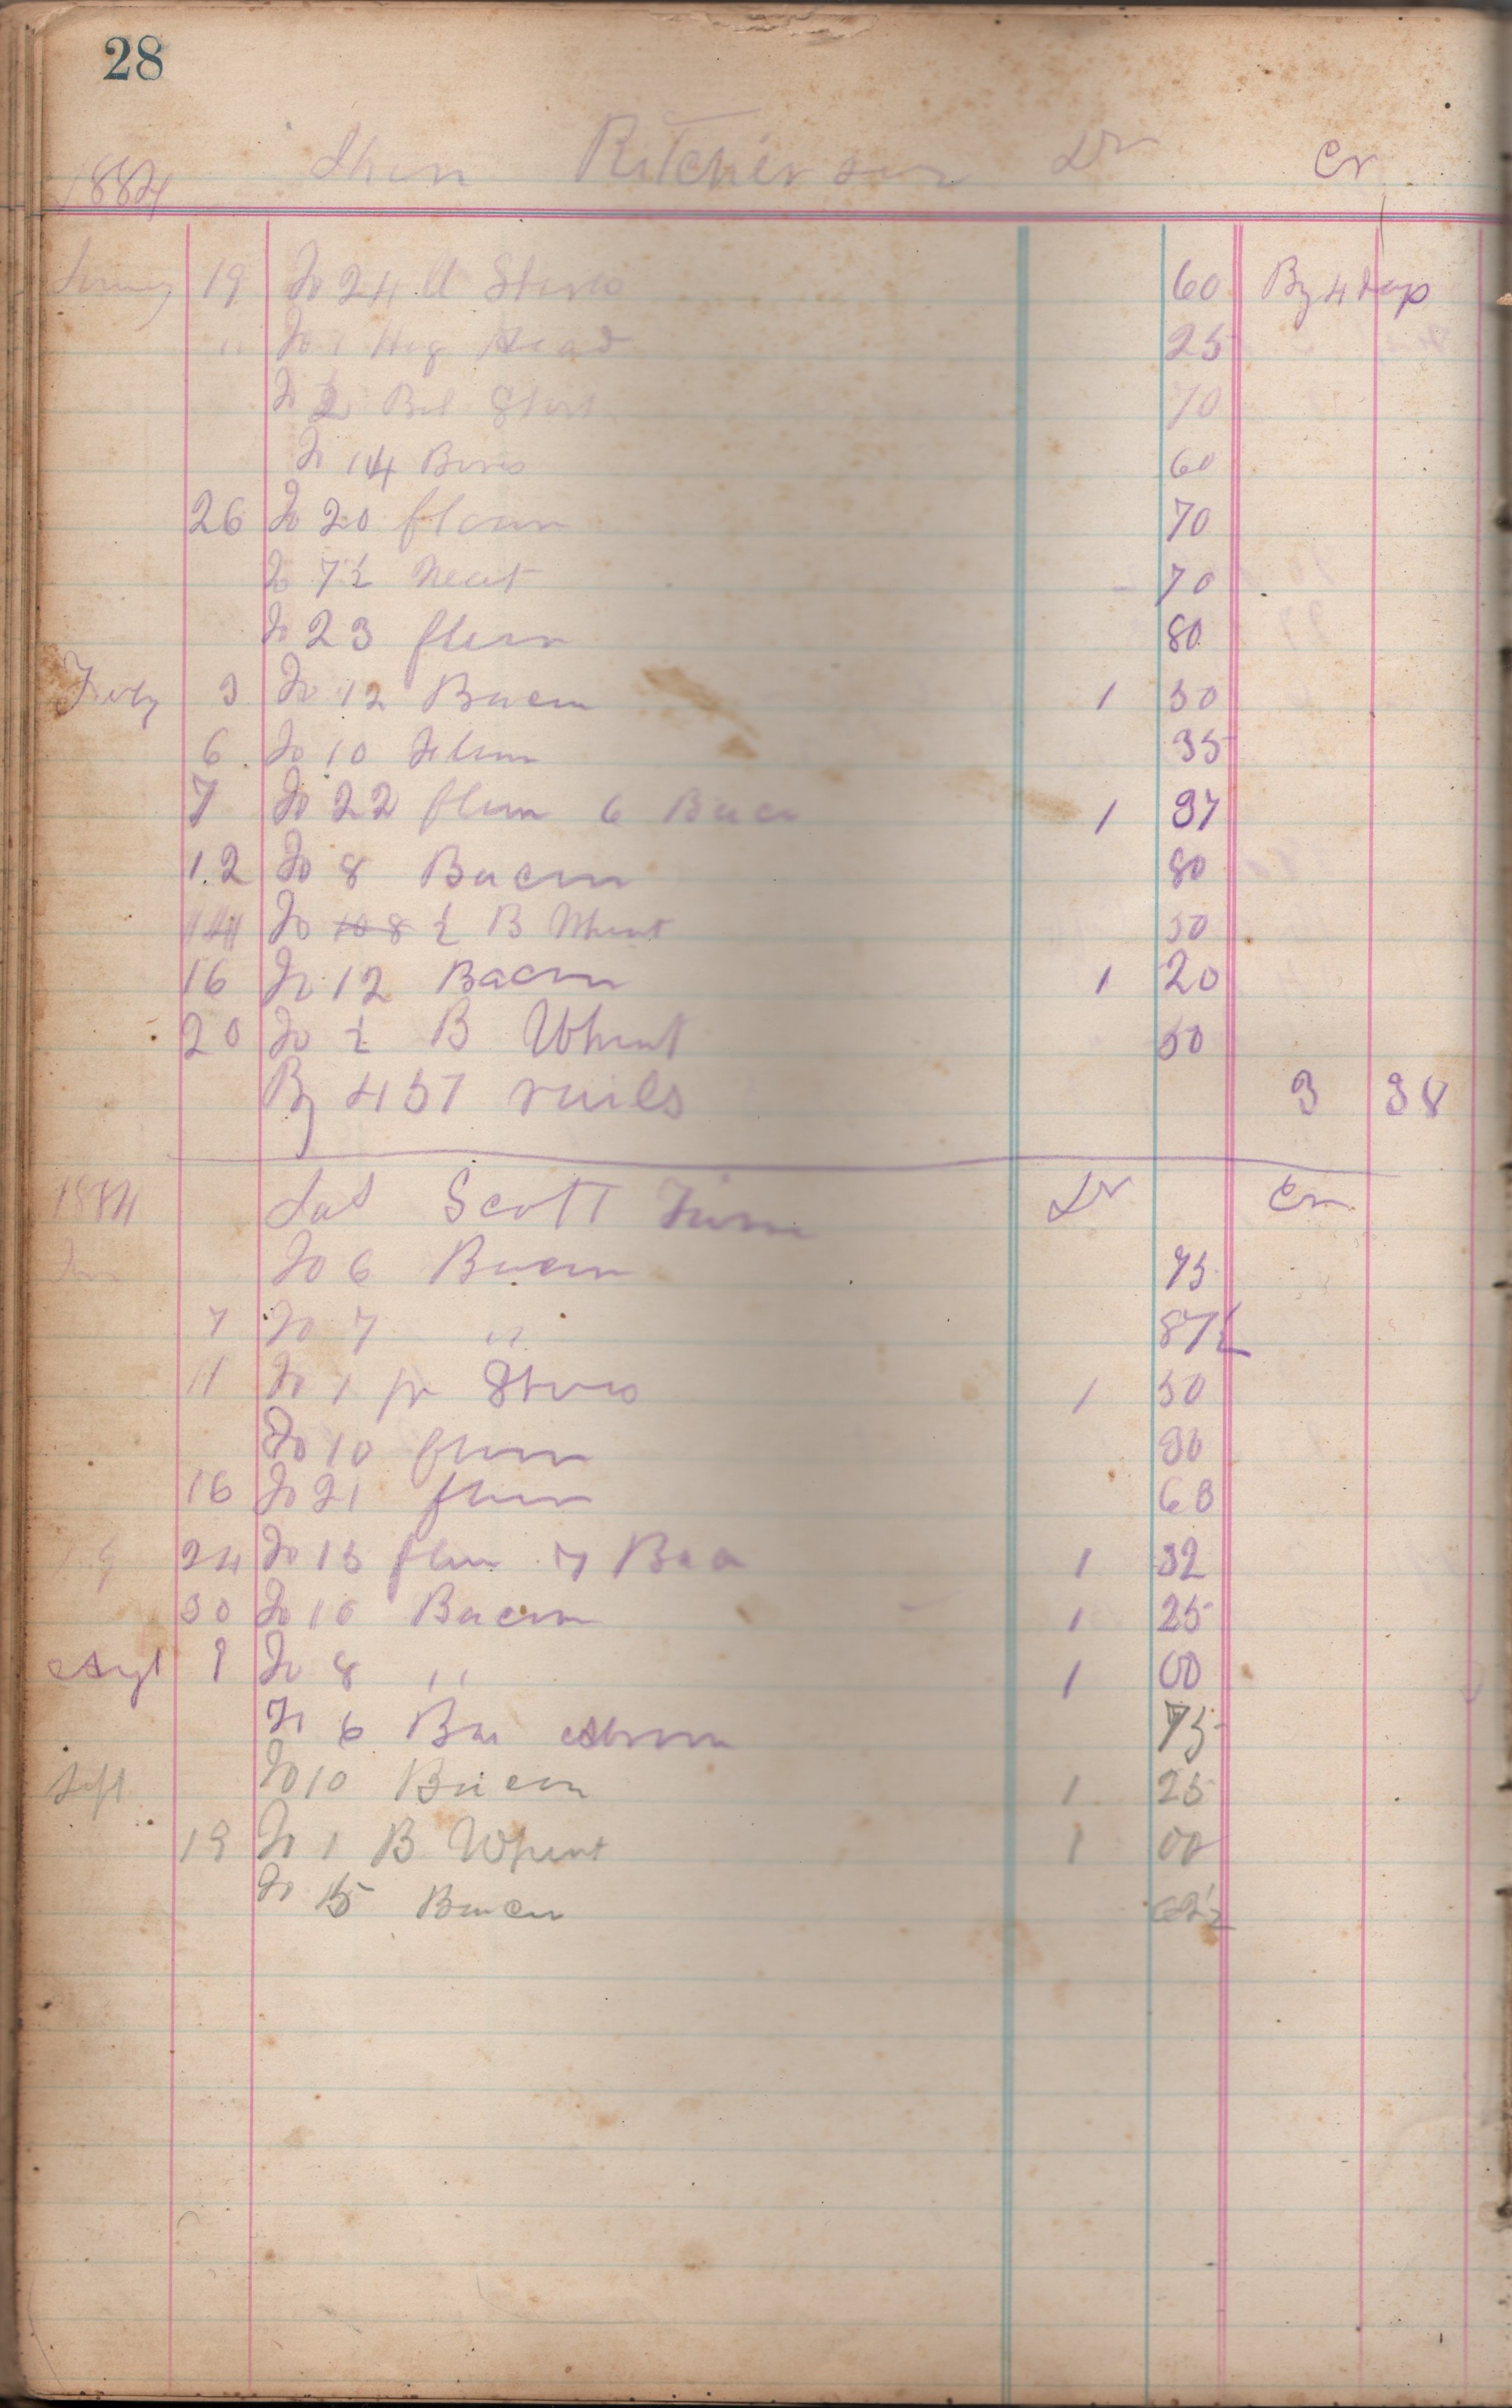 28
1884 Ritcherson Dr Cr
19 To 24 60 By 4 days
" To 1 Hog Head 25
To 2 70
To 14 60
26 To 20 flour 70
To 7½ meat 70
To 23 flour 80
Febry 3 To 12 Bacon 1 50
6 To 10 flour 35
7 To 22 flour 6 Bacn 1 37
12 To 8 Bacon 80
14 To 10 8 ½ B Wheat 50
16 To 12 Bacon 1 20
20 To ½ B Wheat 50
By 451 rails 3 38
1884 Scott Dr Cr
To 6 Bacon 75
7 To 7 " 87½
11 To 1 pr Shoes 1 50
To 10 flour 30
16 To 21 flour 63
24 To 15 flour 7 Bac 1 32
30 To 10 Bacon 1 25
To 8 " 1 00
To 6 Bac 75
Sept To 10 Bacon 1 25
19 To 1 B Wheat 1 00
To 5 Bacon 62½